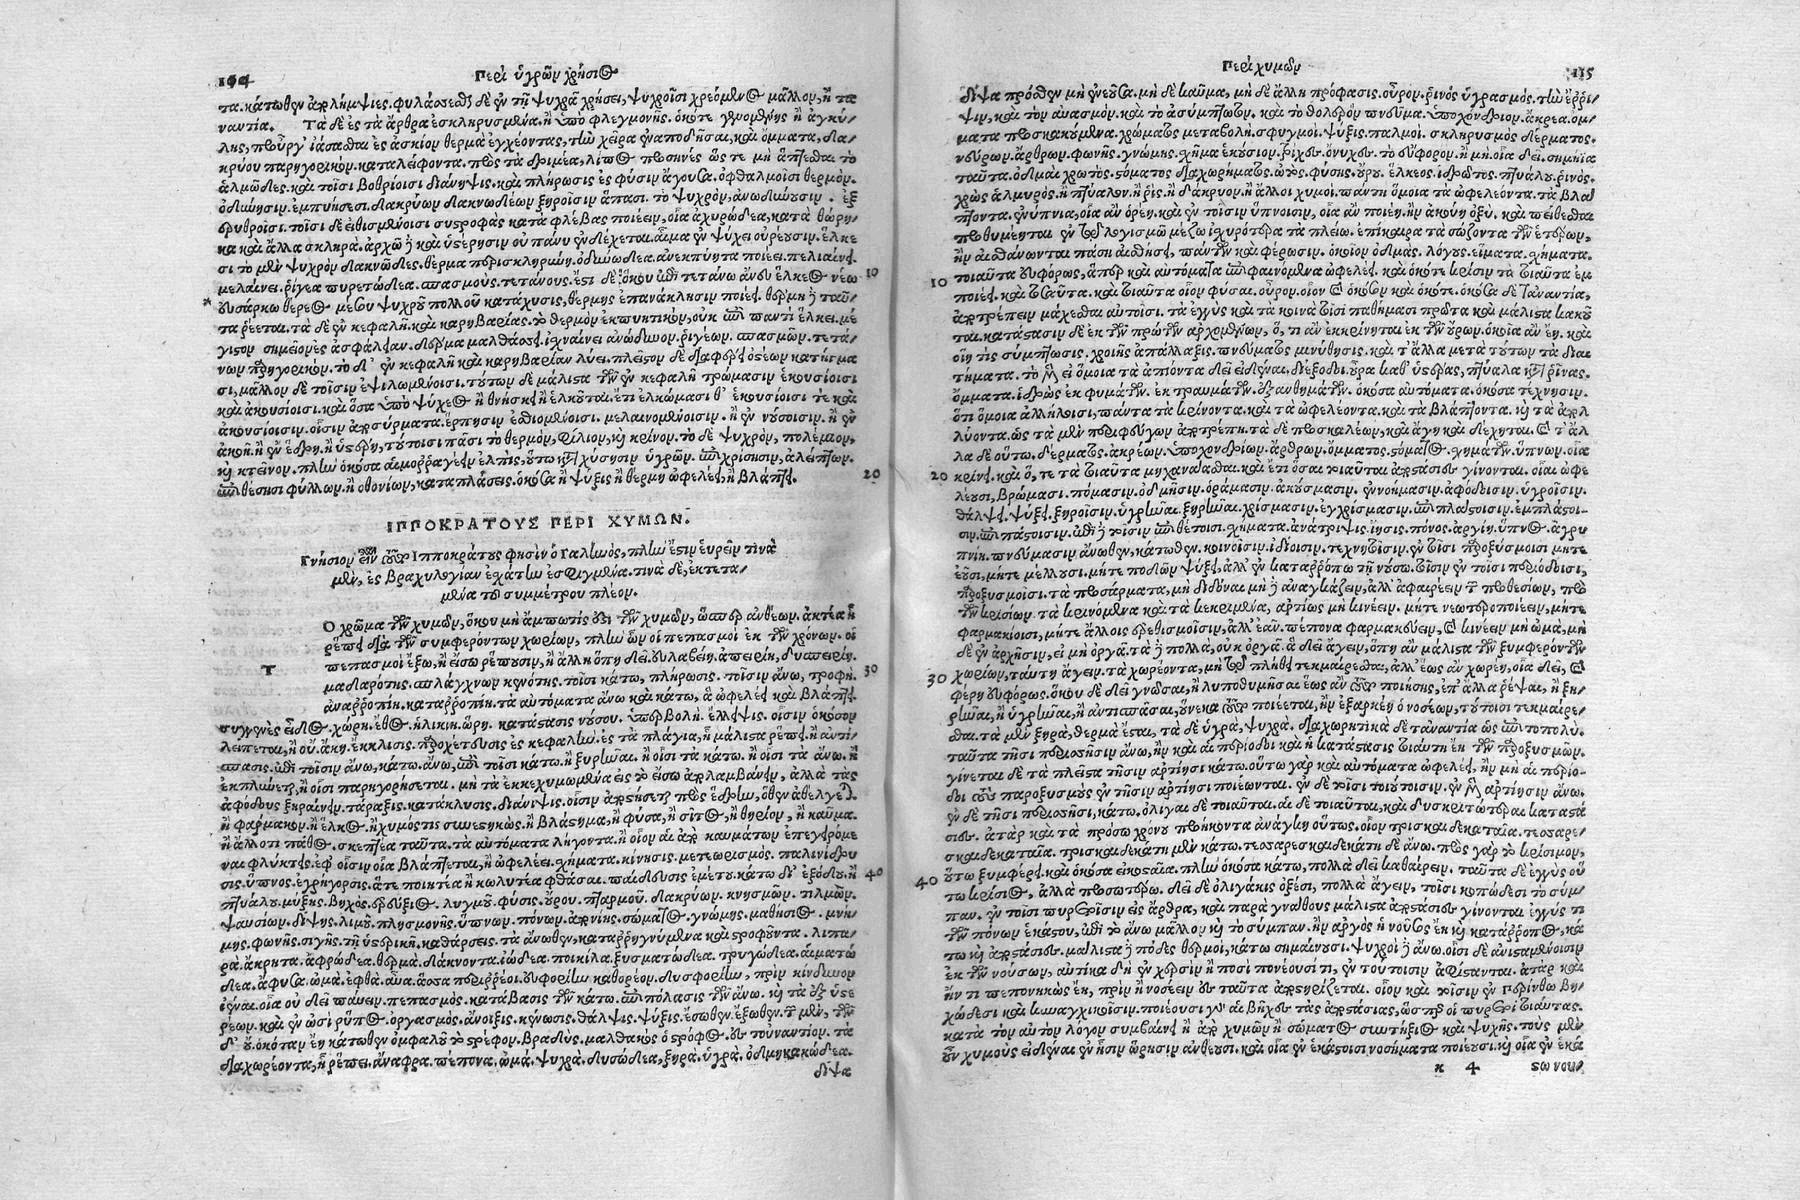 164
Περὶ ὑγρῶν χρήσιος
τα. κάτωθεν ἀπολήμψιες. φυλάσσεσθαι δὲ ἐν τῇ ψυχρᾷ χρήσει, ψυχροῖσι χρεόμενος μᾶλλον, ἢ τὰ
ναντία. Τὰ δὲ ἐς τὰ ἄρθρα ἐσκληρυσμένα. ἢ ὑπὸ φλεγμονῆς. ὁκότε γενομένης ἢ ἀγκύ/
κρύου παρηγορικὸν. καταλείφοντα. πρὸς τὰ δριμέα, λίπος προσηνές ὥς τε μὴ ἅπτεσθαι τὸ
ἁλμῶδες. καὶ τοῖσι βοθρίοισι διάνιψις. καὶ πλήρωσις ἐς φύσιν ἄγουσα. ὀφθαλμοῖσι θερμὸν.
ὀδύνησιν. ἐμπυήσεσι. δακρύων δακνωδέων ξηροῖσιν ἅπασι. τὸ ψυχρὸν, ἀνωδύνοισιν. ἐξ
ερυθροῖσι. τοῖσι δὲ εἰθισμένοισι συστροφὰς κατὰ φλέβας ποιέειν, οἷα ἀχυρώδεα, κατὰ θώρη/
σι τὸ μὲν ψυχρὸν δακνῶδες. θέρμα περισκληρύνῃ. ὀδυνώδεα. ἀνεκπύητα ποιέει. πελιαίνει.
μελαίνει. ῥίγεα πυρετώδεα. σπασμοὺς. τετάνους. ἔστι δὲ ὅκου ἐπὶ τετάνῳ ἄνευ ἕλκεος νέῳ 10
εὐσάρκῳ θέρεος μέσου ψυχροῦ πολλοῦ κατάχυσις, θέρμης ἐπανάκλησιν ποιέει. θέρμη δὲ ταῦ/
τα ῥύεται. τὰ δὲ ἐν κεφαλῇ. καὶ καρηβαρίας. τὸ θερμὸν ἐκπυητικὸν, οὐκ ἐπὶ παντὶ ἕλκει. μέ
γιστον σημεῖον ἐς ἀσφάλειαν. δέρμα μαλθάσσει. ἰσχναίνει ἀνώδυνον. ῥιγέων. σπασμῶν. τετά/
νων παρηγορικὸν. τὸ δ' ἐν κεφαλῇ καὶ καρηβαρίαν λύει. πλεῖστον δὲ διαφέρει ὀστέων κατήγμα
σι, μᾶλλον δὲ τοῖσιν ἐψιλωμένοισι. τούτων δὲ μάλιστα τῶν ἐν κεφαλῇ τρώμασιν ἑκουσίοισι
καὶ ἀκουσίοισι. καὶ ὅσα ὑπὸ ψύχεος ἢ θνήσκει ἢ ἑλκοῦται. ἔτι ἑλκώμασι θ' ἑκουσίοισι τε καὶ
ἀκουσίοισιν. οἷσιν ἀποσύρματα. ἕρπησιν ἐσθιομένοισι. μελαινομένοισιν. ἢ ἐν νούσοισιν. ἢ ἐν
ἀκοῇ. ἢ ἐν ἕδρῃ. ἢ ὑστέρῃ, τούτοισι πᾶσι τὸ θερμὸν, φίλιον, καὶ κρῖνον. τὸ δὲ ψυχρὸν, πολέμιον,
καὶ κτεῖνον. πλὴν ὁκόσα αἱμοῤῥαγέειν ἐλπὶς, οὕτω κατὰ χύσησιν ὑγρῶν. ἐπὶ χρίσησιν, ἀλείπτων.
ἐπὶ θέσησι φύλλων. ἢ ὀθονίων, καταπλάσεις. ὁκόσα ἢ ψύξις ἢ θέρμη ὠφελέει, ἢ βλάπτει. 20
ΙΠΠΟΚΡΑΤΟΥΣ ΠΕΡΙ ΧΥΜΩΝ.
μὲν, ἐς βραχυλογίαν ἐσχάτην ἐσφιγμένα. τινὰ δὲ, ἐκτετα/
μένα τοῦ συμμέτρου πλέον.
Τ
Ὸ χρῶμα τῶν χυμῶν, ὅκου μὴ ἄμπωτίς ἐστι τῶν χυμῶν, ὥσπερ ἀνθέων. ἀκτέα ᾗ
ῥέπει διὰ τῶν συμφερόντων χωρίων, πλὴν ὧν οἱ πεπασμοὶ ἐκ τῶν χρόνων. οἱ
πεπασμοὶ ἔξω, ἢ εἴσω ῥέπουσιν, ἢ ἄλλῃ ὅπῃ δεῖ. εὐλαβείη. ἀπειρίη, δυσπειρίη.
μαδαρότης. σπλάγχνων κενότης. τοῖσι κάτω, πλήρωσις. τοῖσιν ἄνω, τροφή. 30
ἀναρρόπιη. καταρρόπιη. τὰ αὐτόματα ἄνω καὶ κάτω, ἃ ὠφελέει καὶ βλάπτει.
συγγενὲς εἶδος. χώρη. ἔθος. ἡλικίη. ὥρη. κατάστασις νόσου. ὑπερβολὴ. ἔλλειψις. οἷσιν ὁκόσον
λείπεται, ἢ οὔ. ἄκη. ἔκκλισις. παροχέτευσις ἐς κεφαλὴν. ἐς τὰ πλάγια, ᾗ μάλιστα ῥέπει. ἢ ἀντί/
σπασις. ἐπὶ τοῖσιν ἄνω, κάτω. ἄνω, ἐπὶ τοῖσι κάτω. ἢ ξυρῆναι. ἢ οἷσι τὰ κάτω. ἢ οἷσι τὰ ἄνω. ἢ
ἐκπλύνεται, ἢ οἷσι παρηγορήσεται. μὴ τὰ ἐκκεχυμωμένα εἰς τὸ εἴσω ἀπολαμβάνειν, ἀλλὰ τὰς
ἀφόδους ξηραίνειν. τάραξις. κατάκλυσις. διάνιψις. οἷσιν ἀποστήσεται πρὸς ἕδρην, ὅθεν ἀθελγεται.
ἢ φάρμακον. ἢ ἕλκος. ἢ χυμός τις συνεστηκώς. ἢ βλάστημα, ἢ φῦσα, ἢ σῖτος, ἢ θηρίον, ἢ καῦμα.
ἢ ἄλλο τι πάθος. σκεπτέα ταῦτα. τὰ αὐτόματα λήγοντα. ἢ οἷον αἱ ἀπὸ καυμάτων ἐπεγειρόμε
ναι φλύκτεις. ἐφ' οἷσιν οἷα βλάπτεται, ἢ ὠφελέει. σχήματα. κίνησις. μετεωρισμὸς. παλινίδρυ
σις. ὕπνος. ἐγρήγορσις. ἅτε ποιητέα ἢ κωλυτέα φθάσαι. παίδευσις ἐμέτου. κάτω δ' ἐξόδου. ἢ 40
πτυάλου. μύξης. βηχὸς. ἐρεύξιος. λυγμοῦ. φύσις. οὔρου. πταρμοῦ. δακρύων. κνησμῶν. τιλμῶν.
ψαυσίων. δίψης. λιμοῦ. πλησμονῆς. ὕπνων. πόνων. ἀπονίης. σώματος. γνώμης. μαθήσιος. μνή/
μης. φωνῆς. σιγῆς. τῇ ὑστερικῇ. καθάρσεις. τὰ ἄνωθεν, καταῤῥηγνύμενα καὶ στροφοῦντα. λιπα/
ρὰ. ἄκρητα. ἀφρώδεα. θερμὰ. δάκνοντα. ἰώδεα. ποικίλα. ξυσματώδεα. τρυγώδεα. αἱματώ
δεα, ἄφυσα. ὠμὰ. ἑφθὰ. αὖα. ἄσσα περιῤῥέοι. εὐφορίην καθορέον. δυσφορίην, πρὶν κίνδυνον
εἶναι. οἷα οὐ δεῖ παύειν. πεπασμὸς. κατάβασις τῶν κάτω. ἐπιπόλασις τῶν ἄνω. καὶ τὰ ἐξ ὑστε
ρέων. καὶ ἐν ὠσὶ ῥύπος. ὀργασμὸς. ἄνοιξις. κένωσις. θάλψις. ψύξις. ἔσωθεν. ἔξωθεν. τῶν μὲν, τῶν
δ' οὔ. ὁκόταν ἔῃ κάτωθεν ὀμφαλοῦ τὸ στρέφον. βραδὺς. μαλθακὸς ὁ στρόφος. ἐς τοὐναντίον. τὰ
διαχωρέοντα, ᾗ ῥέπει. ἄναφρα. πέπονα. ὠμὰ. ψυχρὰ. δυσώδεα. ξηρὰ. ὑγρὰ. ὀδμὴ κακώδεα.
δίψα
Περὶ χυμῶν
115
δίψα πρόσθεν μὴ ἐνεοῦσα. μὴ δὲ καῦμα, μὴ δὲ ἄλλη πρόφασις. οὖρον. ῥινὸς ὑγρασμὸς. τὴν ἔρρι/
ψιν, καὶ τὸν αὐασμὸν. καὶ τὸ ἀσύμπτωτον. καὶ τὸ θολερὸν πνεῦμα. ὑποχόνδριον. ἄκρεα. ὄμ/
ματα προσκακούμενα. χρώματος μεταβολὴ. σφυγμοὶ. ψύξις. παλμοὶ. σκληρυσμὸς δέρματος.
νεύρων. ἄρθρων. φωνῆς. γνώμης. σχῆμα ἑκούσιον. τρίχες. ὄνυχες. τὸ εὔφορον. ἢ μὴ. οἷα δεῖ. σημήϊα
ταῦτα. ὀδμαὶ χρωτὸς. στόματος. διαχωρήματος. ὠτὸς. φύσης. οὔρου. ἕλκεος. ἱδρῶτος. πτυάλου. ῥινὸς.
χρὼς ἁλμυρὸς. ἢ πτύαλον. ἢ ῥὶς. ἢ δάκρυον. ἢ ἄλλοι χυμοὶ. πάντη ὅμοια τὰ ὠφελέοντα. τὰ βλά/
πτοντα. ἐνύπνια, οἷα ἂν ὁρέῃ. καὶ ἐν τοῖσιν ὕπνοισιν, οἷα ἂν ποιέῃ. ἢν ἀκούῃ ὀξὺ. καὶ πείθεσθαι
προθυμέηται ἐν τῷ λογισμῷ μέζω ἰσχυρότερα τὰ πλείω. ἐπίκαιρα τὰ σώζοντα τῶν ἑτέρων,
ἢν αἰσθάνωνται πάσῃ αἰσθήσει, πάντων καὶ φέρωσιν. ὁκοῖον ὀδμὰς. λόγους. εἵματα. σχήματα.
10 τοιαῦτα εὐφόρως, ἅπερ καὶ αὐτόματα ἐπιφαινόμενα ὠφελέει. καὶ ὁκότε κρίσιν τὰ τοιαῦτα ἐμ
ποιέει. καὶ τοσαῦτα. καὶ τοιαῦτα οἷον φῦσαι. οὖρον. οἷον καὶ ὁκόσον καὶ ὁκότε. ὁκόσα δὲ τἀναντία,
ἀποτρέπειν μάχεσθαι αὐτοῖσι. τὰ ἐγγὺς καὶ τὰ κοινὰ τοῖσι παθήμασι πρῶτα καὶ μάλιστα κακοῦ
ται. κατάστασιν δὲ ἐκ τῶν πρώτων ἀρχομένων, ὅ, τι ἂν ἐκκρίνηται ἐκ τῶν οὔρων. ὁκοῖα ἂν ἔῃ. καὶ
οἵη τις σύμπτωσις. χροιῆς ἀπάλλαξις. πνεύματος μινύθησις. καὶ τ' ἄλλα μετὰ τούτων τὰ διαι
τήματα. τὸ δὲ εἰ ὅμοια τὰ ἀπιόντα δεῖ εἰδέναι. διέξοδοι. οὖρα καθ' ὑστέρας, πτύαλα κατὰ ῥῖνας.
ὄμματα. ἱδρὼς ἐκ φυμάτων. ἐκ τραυμάτων. ἐξανθημάτων. ὁκόσα αὐτόματα. ὁκόσα τέχνησιν.
ὅτι ὅμοια ἀλλήλοισι, πάντα τὰ κρίνοντα. καὶ τὰ ὠφελέοντα. καὶ τὰ βλάπτοντα. καὶ τὰ ἀπολ
λύοντα. ὡς τὰ μὲν περιφεύγων ἀποτρέπῃ. τὰ δὲ προσκαλέων, καὶ ἄγῃ καὶ δέχηται. καὶ τ' ἄλ
λα δὲ οὕτω. δέρματος. ἀκρέων. ὑποχονδρίων. ἄρθρων. ὄμματος. στόματος. σχημάτων. ὕπνων. οἷα
20 κρίνει. καὶ ὅ, τε τὰ τοιαῦτα μηχανάασθαι. καὶ ἔτι ὅσαι τοιαῦται ἀποστάσιες γίνονται. οἷαι ὠφε
λέουσι, βρώμασι. πόμασιν. ὀδμῇσιν. ὁράμασιν. ἀκούσμασιν. ἐννοήμασιν. ἀφόδοισιν. ὑγροῖσιν.
θάλψει. ψύξει. ξηροῖσιν. ὑγρῆναι. ξηρῆναι. χρίσμασιν. ἐγχρίσμασιν. ἐπιπλάστοισιν. ἐμπλάστοι/
πνίη. πνεύμασιν. ἄνωθεν, κάτωθεν. κοινοῖσιν. ἰδίοισιν. τεχνητοῖσιν. ἐν τοῖσι παροξυσμοῖσι μήτε
ἐοῦσι, μήτε μέλλουσι. μήτε ποδῶν ψύξει, ἀλλ' ἐν καταρρόπῳ τῇ νούσῳ. τοῖσιν ἐν τοῖσι περιόδοισι,
παροξυσμοῖσι. τὰ προσάρματα, μὴ διδόναι μὴ δ' ἀναγκάζειν, ἀλλ' ἀφαιρέειν τῶν προσθεσίων, πρὸ
τῶν κρισίων. τὰ κρινόμενα καὶ τὰ κεκριμένα, ἀρτίως μὴ κινέειν. μήτε νεωτεροποιέειν, μήτε
φαρμακίοισι, μήτε ἄλλοις ἐρεθισμοῖσιν, ἀλλ' ἐᾶν. πέπονα φαρμακεύειν, καὶ κινέειν μὴ ὠμὰ, μὴ
δὲ ἐν ἀρχῇσιν, εἰ μὴ ὀργᾷ. τὰ δὲ πολλὰ, οὐκ ὀργᾷ. ἃ δεῖ ἄγειν, ὅπῃ ἂν μάλιστα τῶν ξυμφερόντων
30 χωρίων, ταύτῃ ἄγειν. τὰ χωρέοντα, μὴ τῷ πλήθει τεκμαίρεσθαι, ἀλλ' ἕως ἂν χωρέῃ, οἷα δεῖ, καὶ
φέρῃ εὐφόρως. ὅκου δὲ δεῖ γυιῶσαι, ἢ λυποθυμῆσαι ἕως ἂν τοῦτο ποιήσῃς, ἐπ' ἄλλα ῥέψαι, ἢ ξη/
ρῆναι, ἢ ὑγρῆναι, ἢ ἀντισπᾶσαι, οὕνεκα τοῦτο ποιέεται, ἢν ἐξαρκέῃ ὁ νοσέων, τούτοισι τεκμαίρε/
σθαι. τὰ μὲν ξηρὰ, θερμὰ ἔσται, τὰ δὲ ὑγρὰ, ψυχρὰ. διαχωρητικὰ δὲ τἀναντία ὡς ἐπιτοπολύ.
ταῦτα τῇσι περισσῇσιν ἄνω, ἢν καὶ αἱ περίοδοι καὶ ἡ κατάστασις τοιαύτη ἔῃ τῶν παροξυσμῶν.
γίνεται δὲ τὰ πλεῖστα τῇσιν ἀρτίῃσι κάτω. οὕτω γὰρ καὶ αὐτόματα ὠφελέει, ἢν μὴ αἱ περίο-
δοι τοὺς παροξυσμοὺς ἐν τῇσιν ἀρτίῃσι ποιέωνται. ἐν δὲ τοῖσι τοιούτοισιν, ἐν μὲν ἀρτίῃσιν ἄνω.
ἐν δὲ τῇσι περισσῇσι, κάτω. ὀλίγαι δὲ τοιαῦται. αἱ δὲ τοιαῦται, καὶ δυσκριτώτεραι καταστά
σιες. ἀτὰρ καὶ τὰ πρόσω χρόνου προήκοντα ἀνάγκη οὕτως. οἷον τρισκαιδεκαταῖα. τεσσαρε/
σκαιδεκαταῖα. τρισκαιδεκάτῃ μὲν κάτω. τεσσαρεσκαιδεκάτῃ δὲ ἄνω. πρὸς γὰρ τὸ κρίσιμον,
οὕτω ξυμφέρει. καὶ ὁκόσα εἰκοσταῖα. πλὴν ὁκόσα κάτω, πολλὰ δεῖ καθαίρειν. ταῦτα δὲ ἐγγὺς οὐ
40 τῶν κρίσιος, ἀλλὰ προσωτέρω. δεῖ δὲ ὀλιγάκις ὀξέσι, πολλὰ ἄγειν. τοῖσι κοπώδεσι τὸ σύμ/
παν. ἐν τοῖσι πυρετοῖσιν εἰς ἄρθρα, καὶ παρὰ γνάθους μάλιστα ἀποστάσιες γίνονται ἐγγύς τι
τῶν πόνων ἑκάστου, ἐπὶ τὸ ἄνω μᾶλλον καὶ τὸ σύμπαν. ἢν ἀργὸς ἡ νοῦσος ἔῃ καὶ κατάρροπος, κά
τω καὶ ἀποστάσιες. μάλιστα δὲ πόδες θερμοὶ, κάτω σημαίνουσι. ψυχροὶ δὲ ἄνω. οἷσι δὲ ἀνισταμένοισιν
ἐκ τῶν νούσων, αὐτίκα δὴ ἐν χερσὶν ἢ ποσὶ πονέουσί τι, ἐν τούτοισιν ἀφίστανται. ἀτὰρ καὶ
ἤν τι πεπονηκὼς ἔῃ, πρὶν ἢ νοσέειν ἐς ταῦτα ἀποστηρίζεται. οἷον καὶ τοῖσιν ἐν Περίνθῳ βη/
χώδεσι καὶ κυναγχικοῖσιν. ποιέουσι γὰρ αἱ βῆχες τὰς ἀποστάσιας, ὥσπερ οἱ πυρετοὶ τοιαύτας.
κατὰ τὸν αὐτὸν λόγον συμβαίνει ἢ ἀπὸ χυμῶν ἢ σώματος συντήξιος καὶ ψυχῆς. τοὺς μὲν
οὖν χυμοὺς εἰδέναι ἐν ᾗσιν ὥρῃσιν ἀνθέουσι. καὶ οἷα ἐν ἑκάστοισι νοσήματα ποιέουσι. καὶ οἷα ἐν ἑκά
κ 4
στῳ νου/